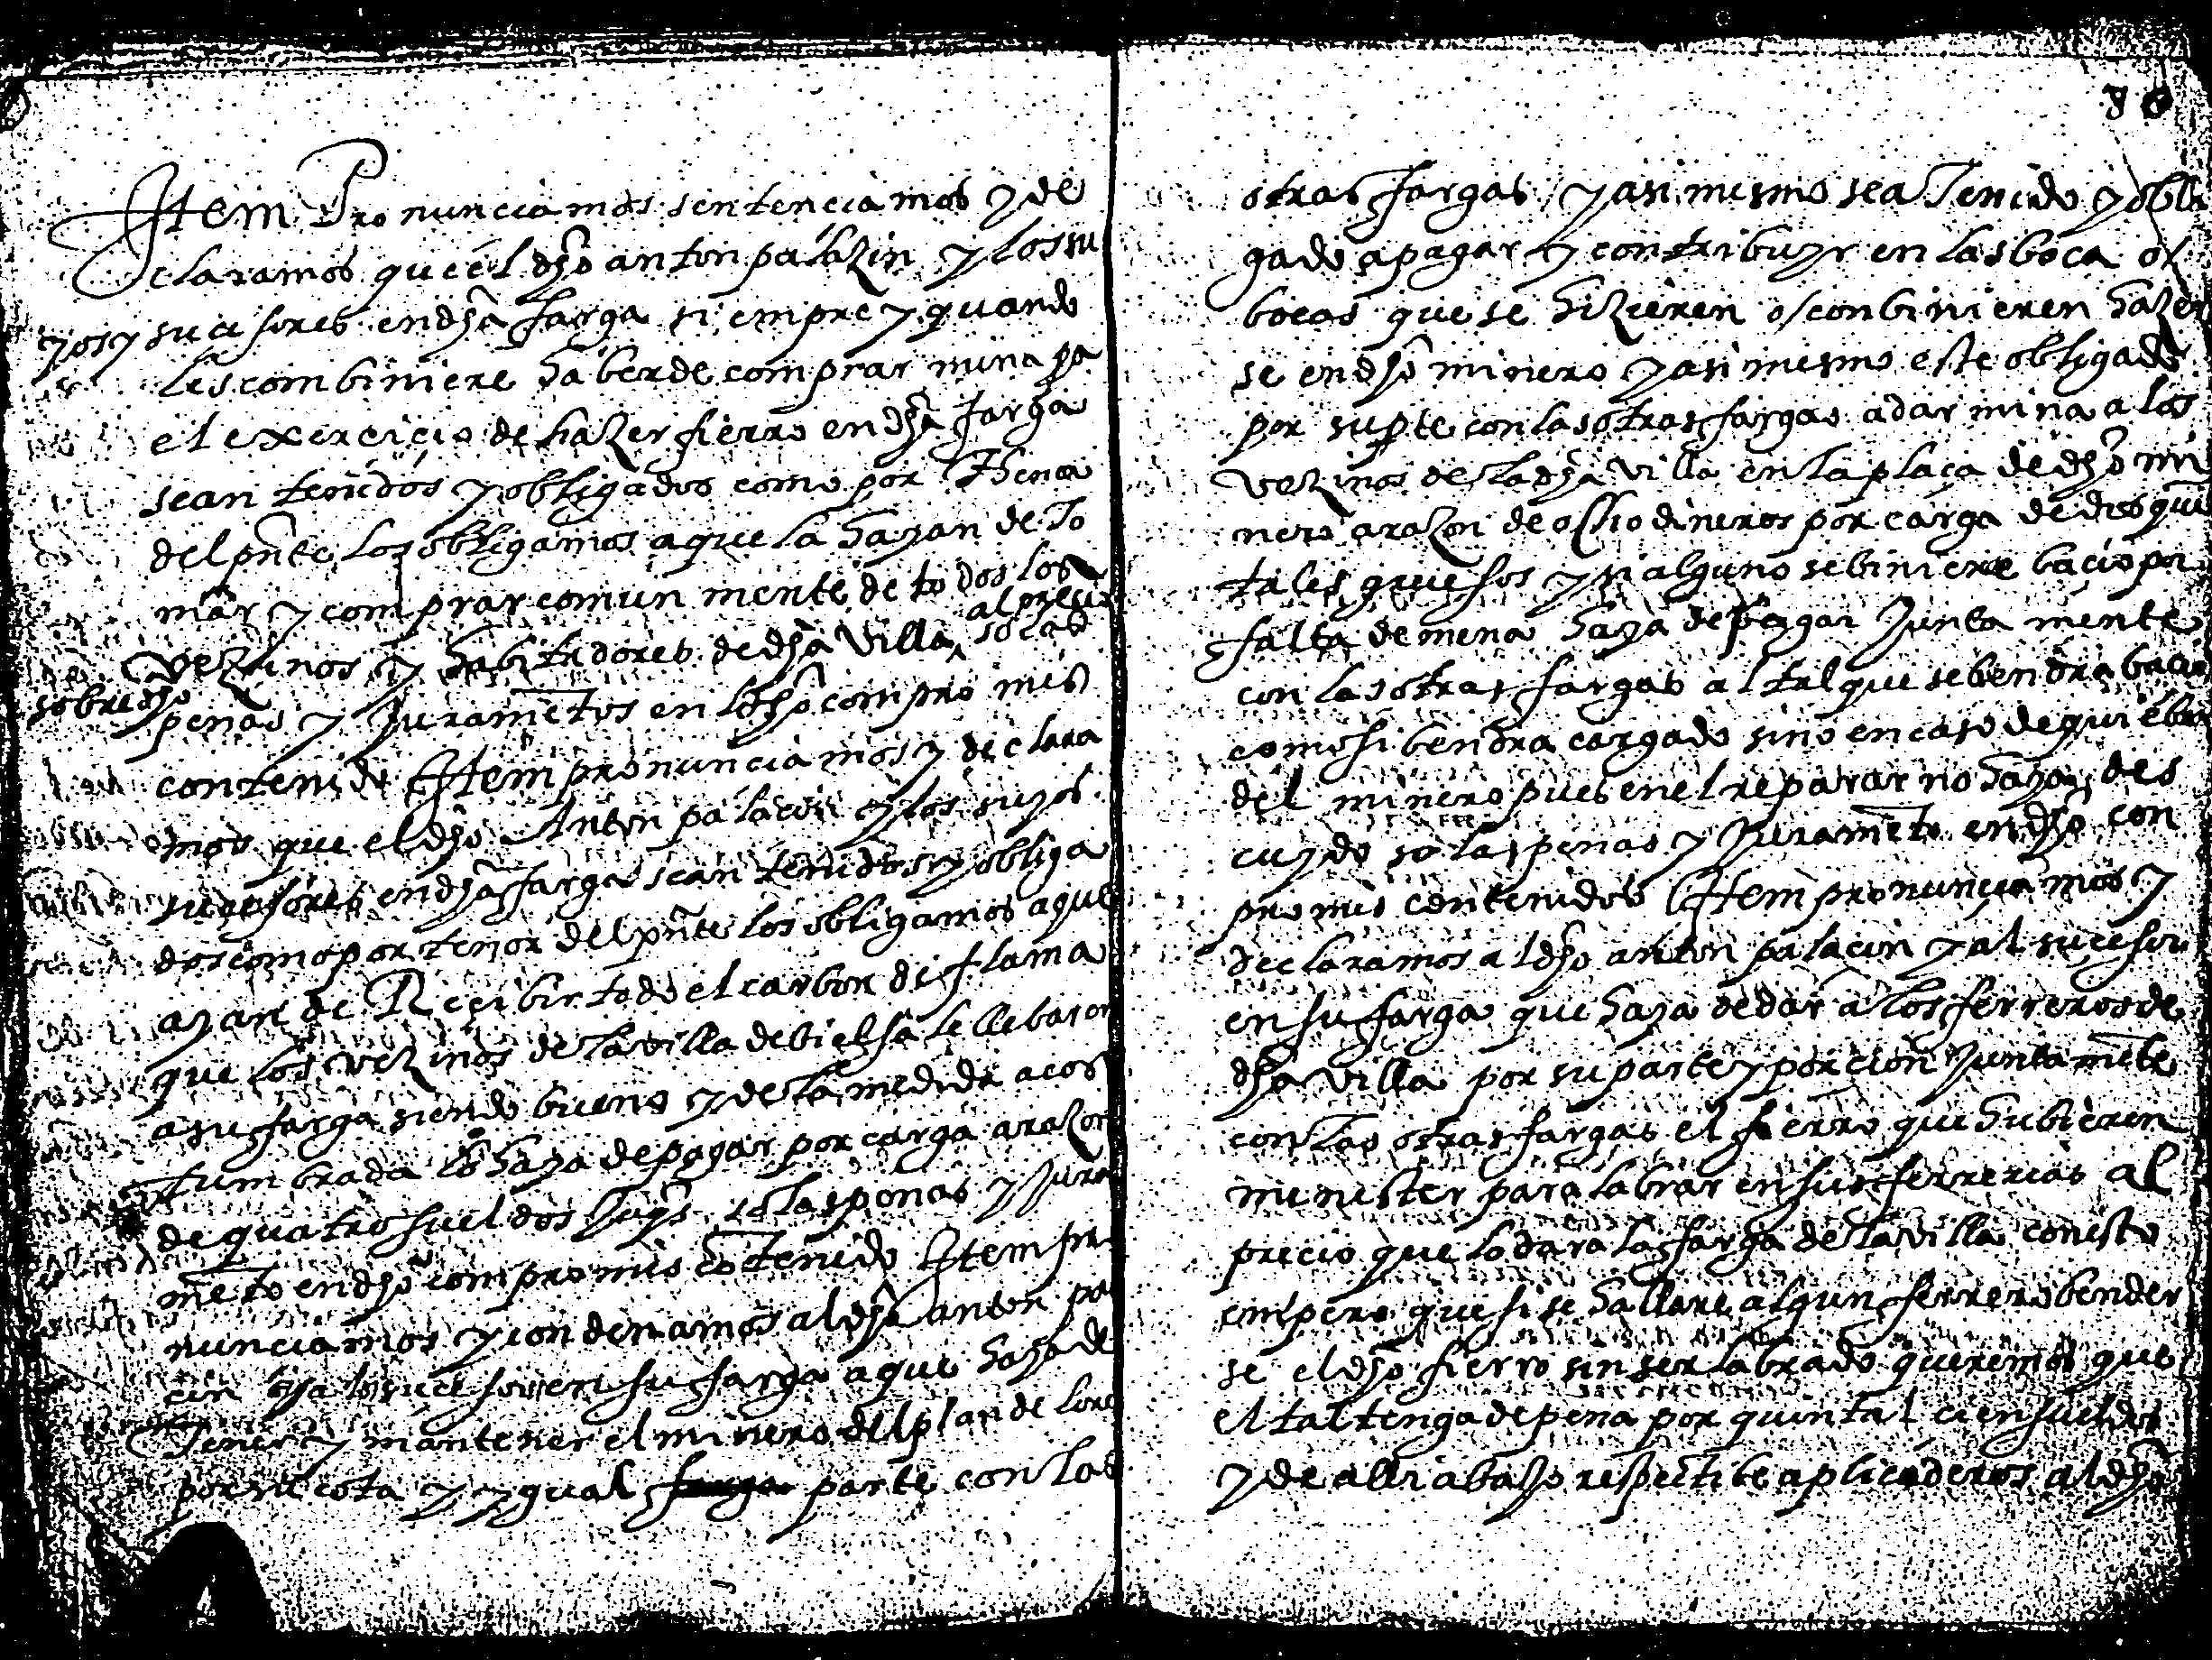 80
Item Pronunciamos sentenciamos y de
claramos que el dho anton palazin y los su
yos y sucesores en dha farga siempre y quando
les combiniere haber de comprar mina pa
el exercicio de hazer fierro en dha farga
sean tenidos y obligados como por thenor
del pnte los obligamos a que la hayan de to
mar y comprar comun mente de todos los
vezinos y habitadores de dha villa al precio
sobredho so las
penas y Jurametos en dho compromis
contenido Item pronunciamos y declara
mos que el dho Anton palacin y los suyos
sucesores en dha farga sean tenidos y obliga
dos como por tenor del pnte los obligamos a que
ayan de Recibir todo el carbon de flama
que los vezinos de la villa de bielsa le llebaron
a su farga siendo bueno y de la medida acos
tumbrada lo haya de pagar por carga a razon
de quatro sueldos Jaqs so las penas y Jura
meto en dho compromis cotenido Item pro
nunciamos y condenamos al dho anton pa
cin y a los sucesores en su farga a que haya de
Tener y mantener el minero del plan de lore
por su cota y ygual farga parte con las
otras fargas y asi mismo sea Tenido y obli
gado a pagar y contribuyr en las boca o/
bocas que se hizieren o/ conbinieren hazer
se en dho minero y asi mesmo este obligado
por su pte con las otras fargas a dar mina a los
vezinos de la dha villa en la plaça de dho mi
nero a razon de ocho dineros por carga de dos quin
tales gruesos y si alguno se biniere bacio por
falta de mena haya de pagar Junta mente
con las otras fargas al tal que se bendra bacio
como si bendra cargado sino en caso de quiebra
del minero pues en el reparar no haya des
cuydo so las penas y Jurameto en dho com
promis contenidos Item pronunciamos y
declaramos al dho anton palacin y al sucesor
en su farga que haya de dar a los ferreros de
dha villa por su parte y porcion Junta mete
con las otras fargas el fierro que hubieren
menester para labrar en sus ferrerias al
precio que lo dara la farga de la villa con esto
empero que si se hallare algun ferrero bender
se el dho fierro sin ser labrado queremos que
el tal tenga de pena por quintal cien sueldos
y de alli abaxo respectibe aplicaderos al dho